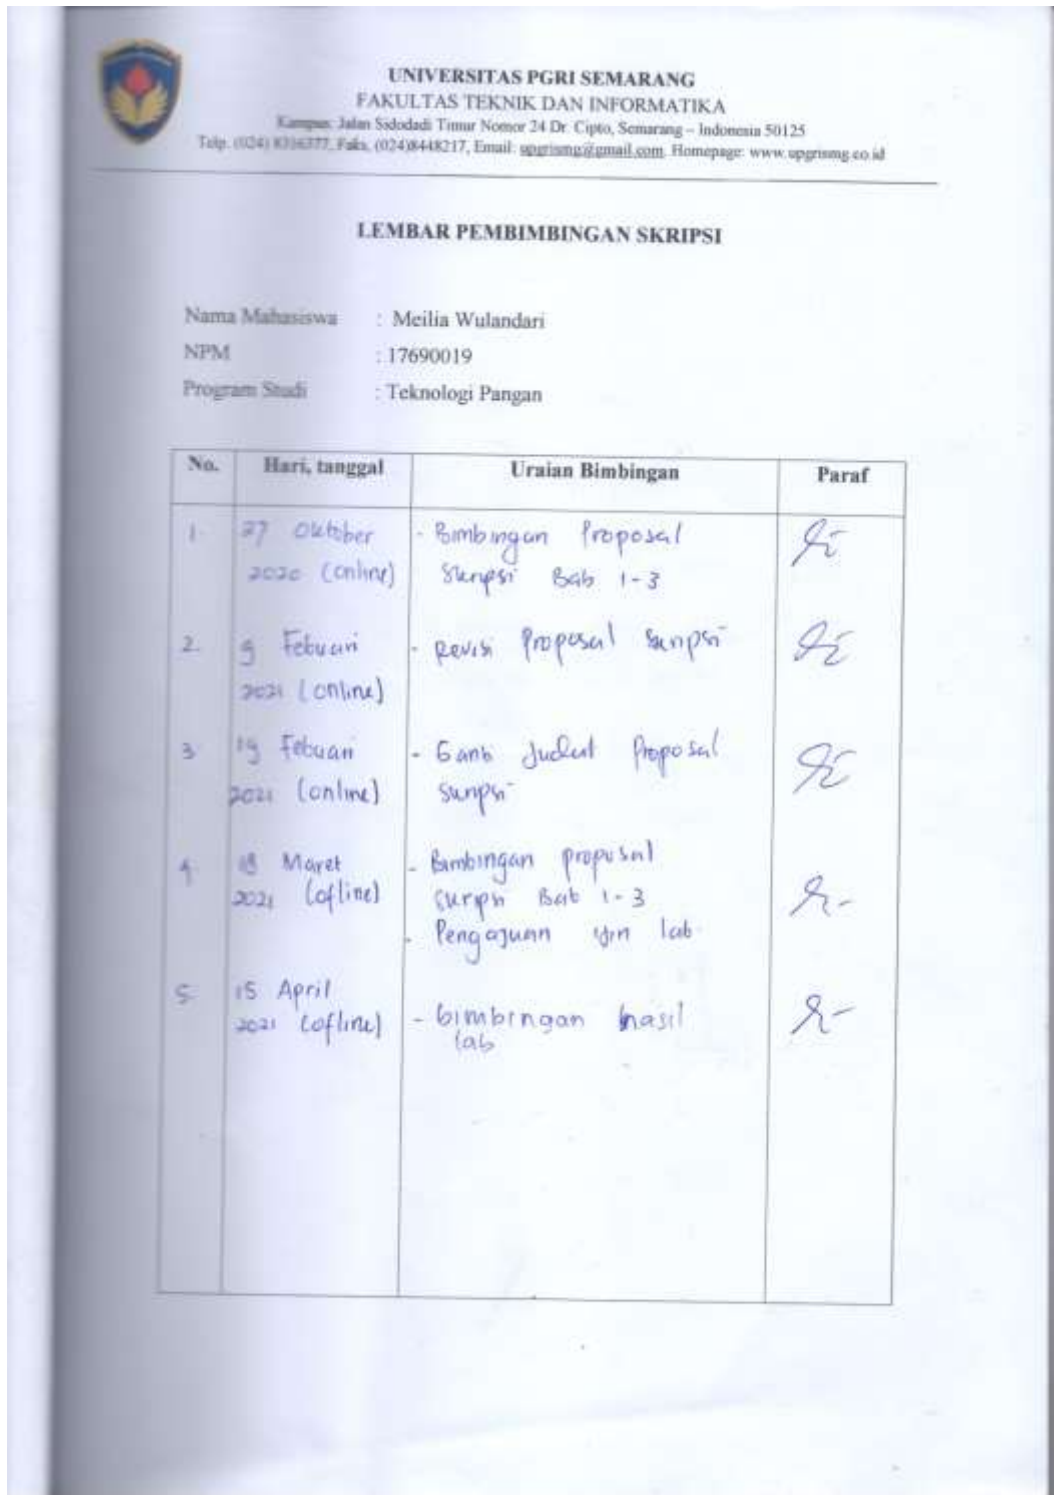 UNIVERSITAS PGRI SEMARANG
FAKULTAS TEKNIK DAN INFORMATIKA
Kampus: Jalan Sidodadi Timur Nomor 24 Dr. Cipto, Semarang – Indonesia 50125
Telp. (024) 8316377, Faks. (024)8448217, Email: upgrismg@gmail.com, Homepage: www.upgrismg.co.id
LEMBAR PEMBIMBINGAN SKRIPSI
Nama Mahasiswa : Meilia Wulandari
NPM : 17690019
Program Studi : Teknologi Pangan
No. Hari, tanggal Uraian Bimbingan Paraf
1. 27 Oktober - Bimbingan Proposal
2020 (online) Skripsi Bab 1-3
2. 9 Febuari - Revisi Proposal Skripsi
2021 (online)
3. 19 Febuari - Ganti Judul Proposal
2021 (online) Skripsi
4. Maret - Bimbingan proposal
2021 (ofline) Skripsi Bab 1-3
- Pengajuan ijin lab.
5. 15 April
2021 (ofline) - bimbingan hasil
lab